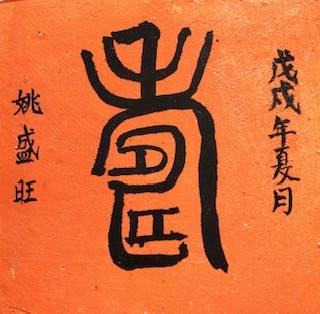 戊戌年夏月
壽
姚盛旺